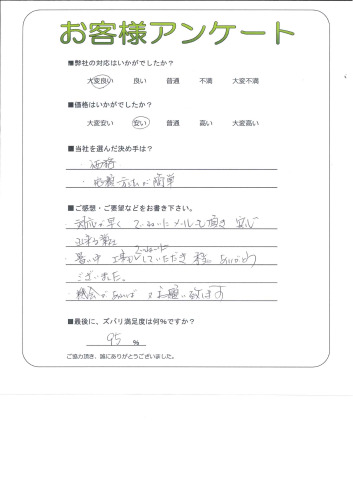 お客様アンケート
■弊社の対応はいかがでしたか?
大変良い 良い 普通 不満 大変不満
■価格はいかがでしたか?
大変安い 安い 普通 高い 大変高い
■当社を選んだ決め手は?
・価格
・依頼方法が簡単
■ご感想・ご要望などをお書き下さい。
対応が早く ていねいなメールも頂き 安心
出来る業社
ていねいに
暑い中 工事をしていただき ありがとう
ございました。
機会があれば 又お願い致します
■最後に、ズバリ満足度は何%ですか?
95 %
ご協力頂き、誠にありがとうございました。